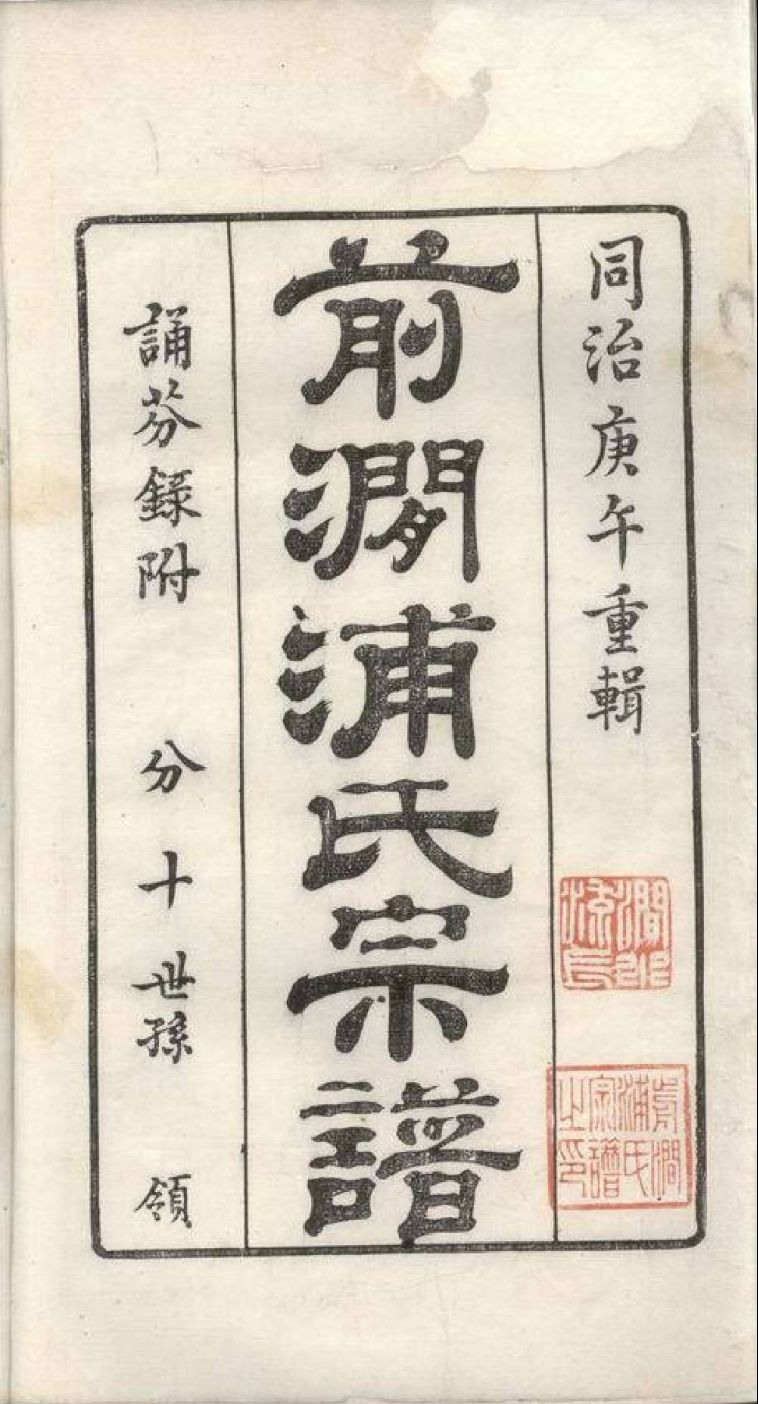 同治庚午重輯
前澗浦氏宗譜
誦芬錄附 分十世孫 領
前澗
浦氏
宗譜
之印